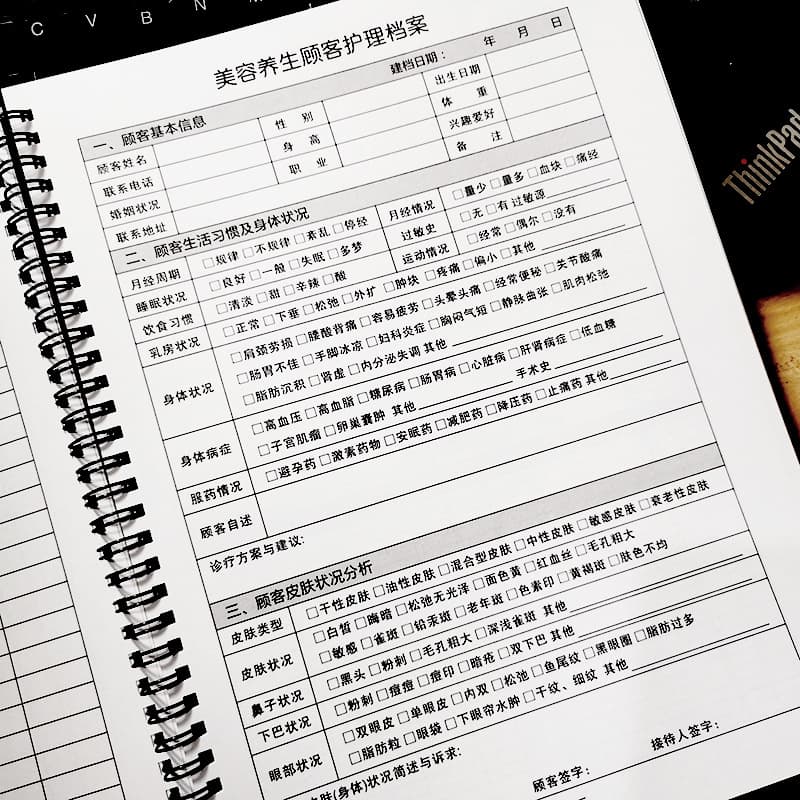 C V B N M
ThinkPad
美容养生顾客护理档案
建档日期： 年 月 日
一、顾客基本信息
顾客姓名 性 别 出生日期
联系电话 身 高 体 重
婚姻状况 职 业 兴趣爱好
联系地址 备 注
二、顾客生活习惯及身体状况
月经周期 □规律 □不规律 □紊乱 □停经 月经情况 □量少 □量多 □血块 □痛经
睡眠状况 □良好 □一般 □失眠 □多梦 过敏史 □无 □有 过敏源
饮食习惯 □清淡 □甜 □辛辣 □酸 运动情况 □经常 □偶尔 □没有
乳房状况 □正常 □下垂 □松弛 □外扩 □肿块 □疼痛 □偏小 □其他
身体状况 □肩颈劳损 □腰酸背痛 □容易疲劳 □头晕头痛 □经常便秘 □关节酸痛
□肠胃不佳 □手脚冰凉 □妇科炎症 □胸闷气短 □静脉曲张 □肌肉松弛
□脂肪沉积 □肾虚 □内分泌失调 其他
身体病症 □高血压 □高血脂 □糖尿病 □肠胃病 □心脏病 □肝肾病症 □低血糖
□子宫肌瘤 □卵巢囊肿 其他 手术史
服药情况 □避孕药 □激素药物 □安眠药 □减肥药 □降压药 □止痛药 其他
顾客自述
诊疗方案与建议:
三、顾客皮肤状况分析
皮肤类型 □干性皮肤 □油性皮肤 □混合型皮肤 □中性皮肤 □敏感皮肤 □衰老性皮肤
皮肤状况 □白皙 □晦暗 □松弛无光泽 □面色黄 □红血丝 □毛孔粗大
□敏感 □雀斑 □铅汞斑 □老年斑 □色素印 □黄褐斑 □肤色不均
鼻子状况 □黑头 □粉刺 □毛孔粗大 □深浅雀斑 其他
下巴状况 □粉刺 □痘痘 □痘印 □暗疮 □双下巴 其他
眼部状况 □双眼皮 □单眼皮 □内双 □松弛 □鱼尾纹 □黑眼圈 □脂肪过多
□脂肪粒 □眼袋 □下眼帘水肿 □干纹、细纹 其他
肤(身体)状况简述与诉求:
顾客签字： 接待人签字：